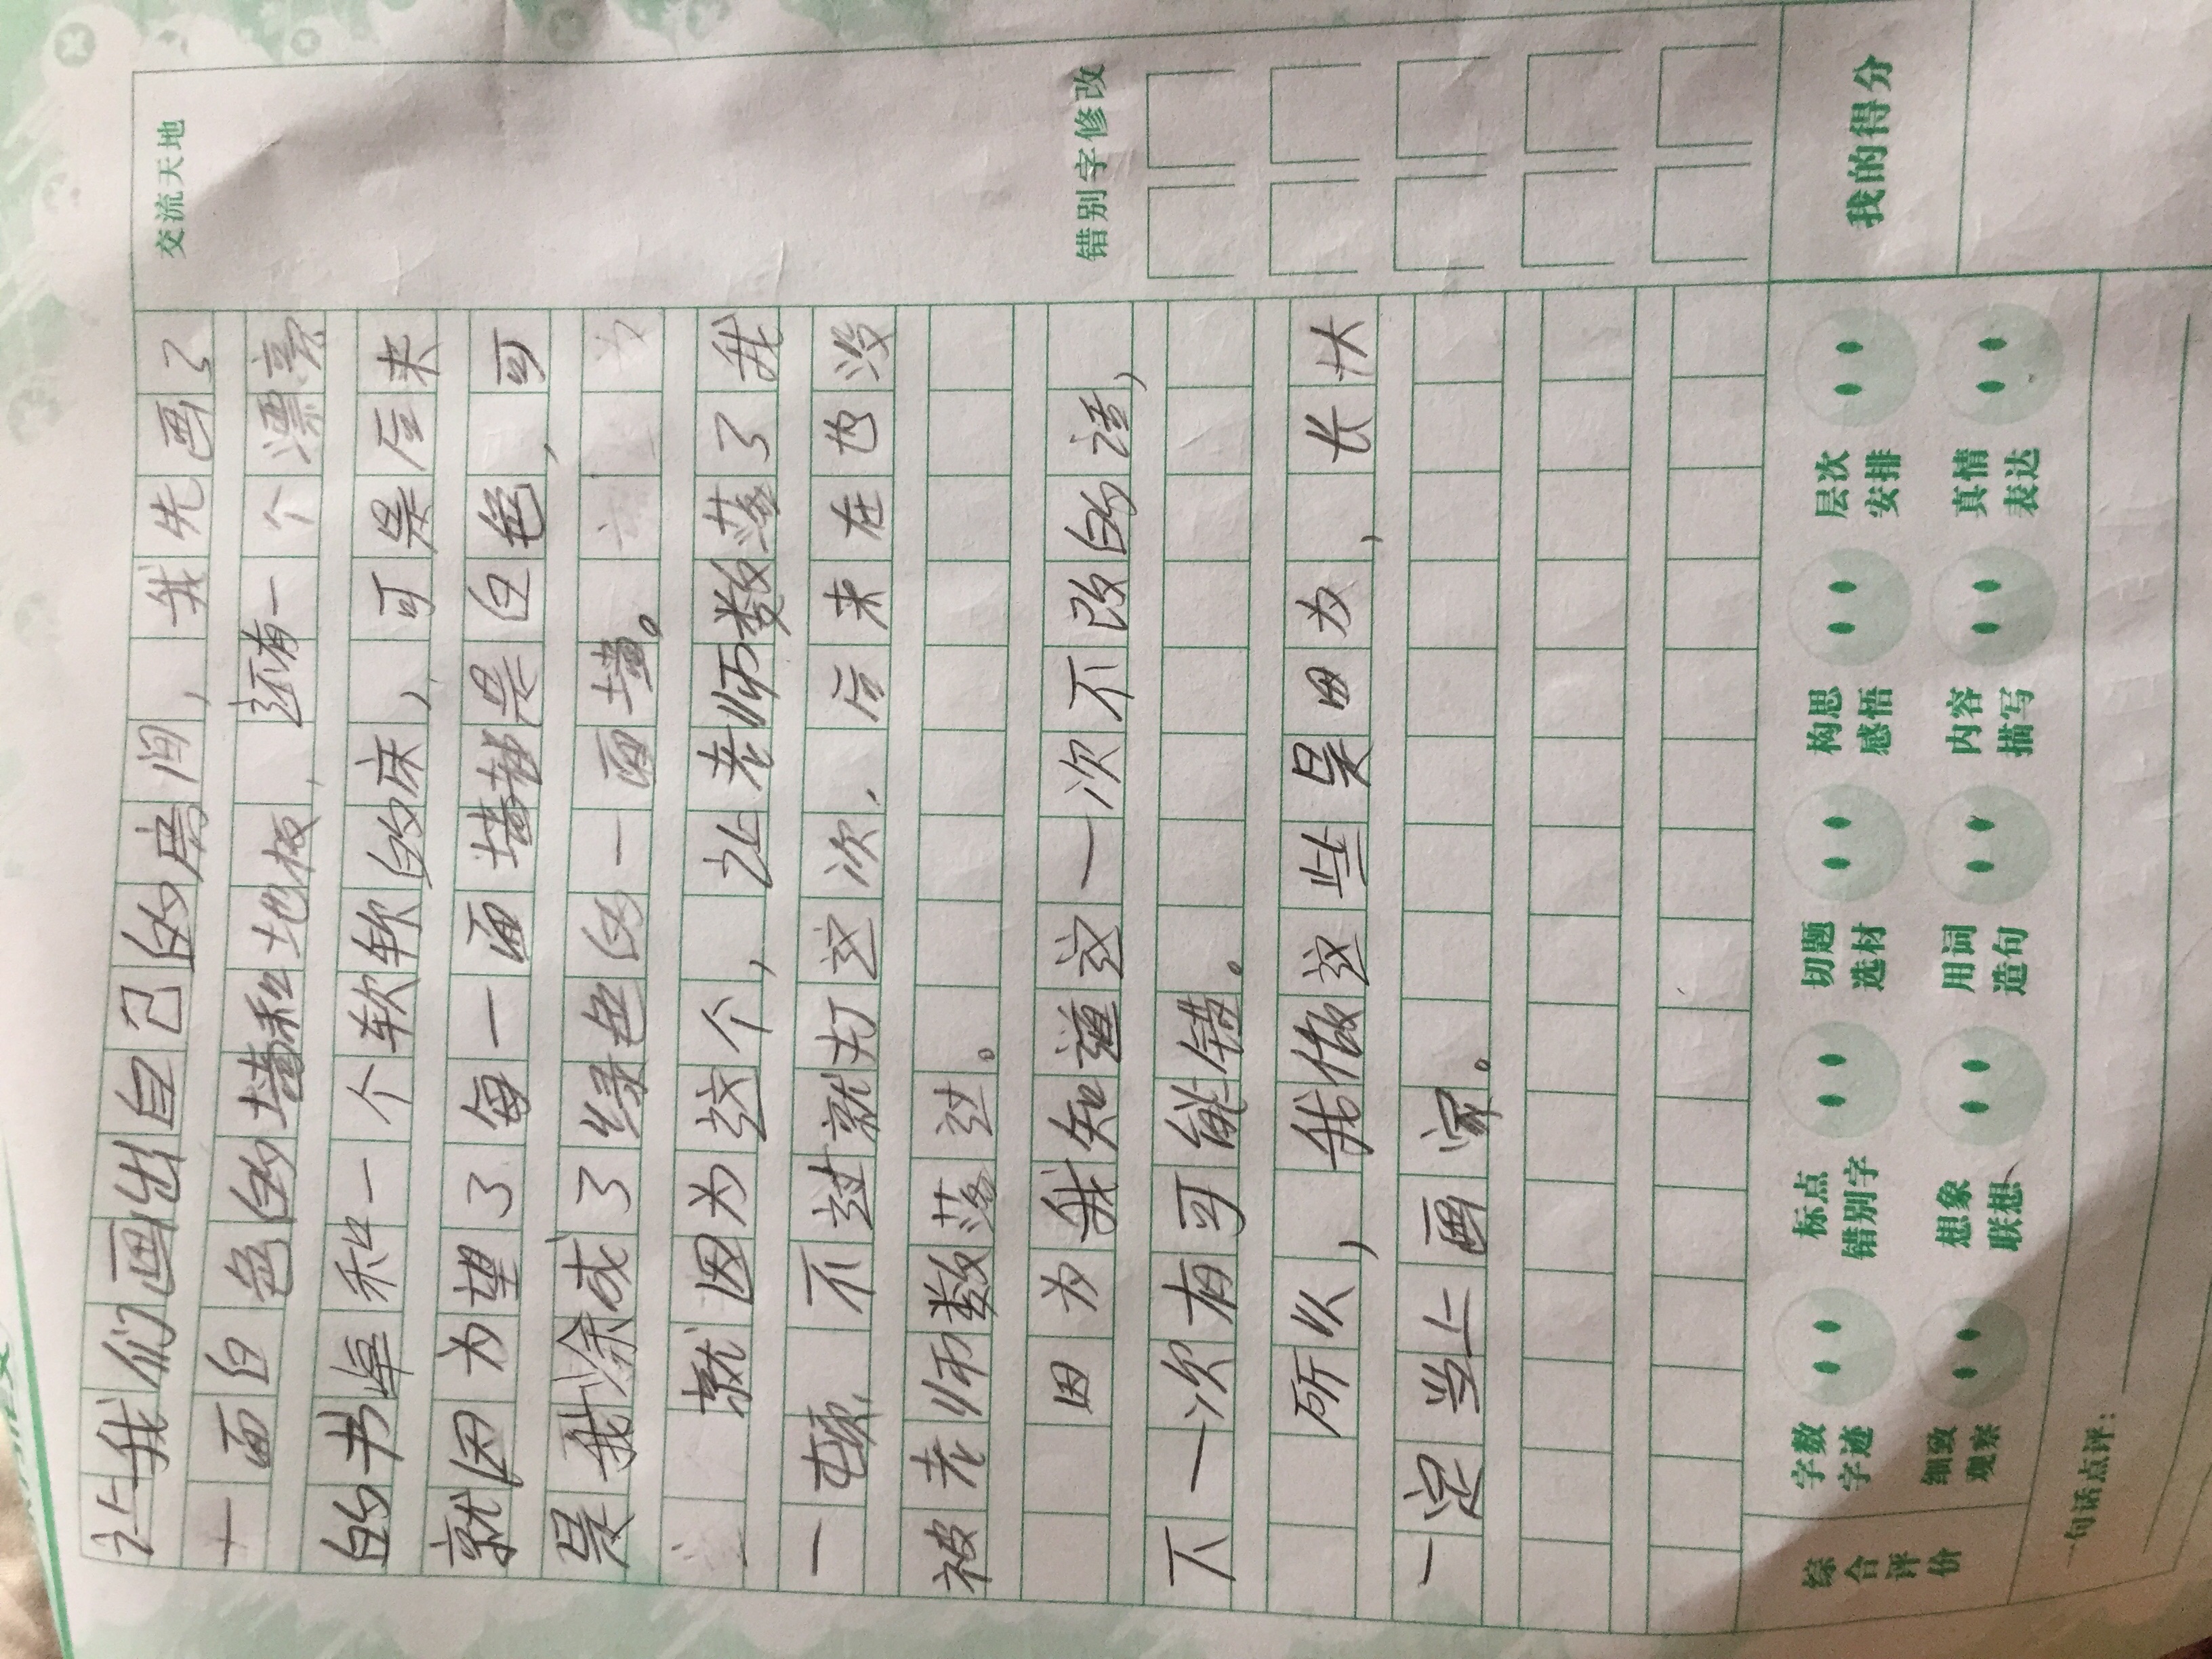 让我们画出自己的房间，我先画了
一面白色的墙和地板，还有一个漂亮
的书桌和一个软软的床，可是后来
就因为望了每一面墙都是白色，可
是我涂成了绿色的一面墙。
就因为这个，让老师数落了我
一顿，不过就打这次，后来在也没
被老师数落过。
因为我知道这一次不改的话，
下一次有可能错。
所以，我做这些是因为，长大
一定当上画家。
交流天地
错别字修改
我的得分
综合评价
字数字迹
标点错别字
切题选材
构思感悟
层次安排
细致观察
想象联想
用词造句
内容描写
真情表达
一句话点评：